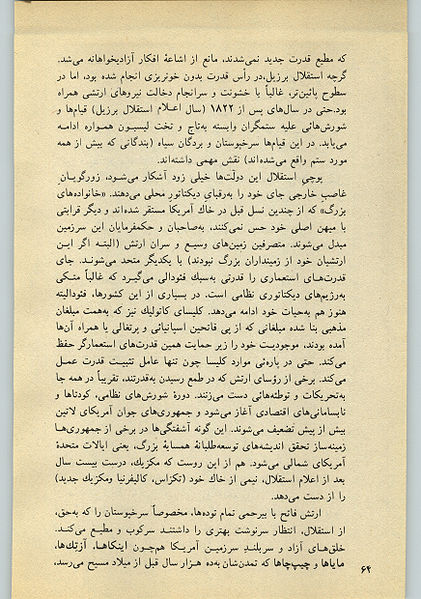 که مطیع قدرت جدید نمی‌شدند، مانع از اشاعهٔ افکار آزادیخواهانه می‌شد.
گرچه استقلال برزیل،در رأس قدرت بدون خونریزی انجام شده بود، اما در
سطوح پائین‌تر، غالباً با خشونت و سرانجام دخالت نیروهای ارتشی همراه
بود.حتی در سال‌های پس از ۱۸۲۲ (سال اعلام استقلال برزیل) قیام‌ها و
شورش‌هائی علیه ستمگران وابسته به‌تاج و تخت لیسبون همواره ادامه
می‌یابد. در این قیام‌ها سرخپوستان و بردگان سیاه (بندگانی که بیش از همه
مورد ستم واقع می‌شده‌اند) نقش مهمی داشته‌اند.
پوچیِ استقلال این دولّت‌ها خیلی زود آشکار می‌شود، زورگویـانِ
غاصبِ خارجی جای خود را به‌رقبایِ دیکتاتورِ محلی می‌دهند. «خانواده‌های
بزرگ» که از چندین نسل قبل در خاك آمریکا مستقر شده‌اند و دیگر قرابتی
با میهن اصلی خود حس نمی‌کنند، به‌صاحبان و حکمفرمایان این سرزمین
مبدل می‌شوند. متصرفین زمین‌های وسیـع و سران ارتش (البتـه اگر ایـن
ارتشیان خود از زمینداران بزرگ نبودند) با یکدیگر متحد می‌شونـد. جای
قدرت‌هـای استعماری را قدرتی به‌سبك فئودالی می‌گیـرد که غالبـاً متـکی
به‌رژیم‌های دیکتاتوری نظامی است. در بسیاری از این کشورها، فئودالیته
هنوز هم به‌حیات خود ادامه می‌دهد. کلیسای کاتولیك نیز که به‌همت مبلغان
مذهبی بنا شده مبلغانی که از پی فاتحین اسپانیائی و پرتغالی یا همراه آن‌ها
آمده بودند، موجودیـت خود را زیر حمایت همین قدرت‌های استعمارگر حفظ
می‌کند. حتی در پاره‌ئی موارد کلیسا چون تنها عامل تثبیـت قدرت عمـل
می‌کند. برخی از رؤسای ارتش که در طمع رسیدن به‌قدرتند، تقریباً در همه جا
به‌تحریکات و توطئه‌هائی دست می‌زنند. دورهٔ شورش‌های نظامی، کودتاها و
نابسامانی‌های اقتصادی آغاز می‌شود و جمهوری‌های جوان آمریکای لاتین
بیش از پیش تضعیف می‌شوند. این گونه آشفتگی‌ها در برخی از جمهوری‌هـا
زمینه‌ساز تحقق اندیشه‌های توسعه‌طلبانهٔ همسایهٔ بزرگ، یعنی ایالات متحدهٔ
آمریکای شمالی می‌شود. هم از این روست که مکزیك، درست بیست سال
بعد از اعلام استقلال، نیمی از خاك خود (تکزاس، کالیفرنیا ومکزیك جدید)
را از دست می‌دهد.
ارتش فاتح با بیرحمی تمام توده‌ها، مخصوصاً سرخپوستان را که به‌حق،
از استقلال، انتظار سرنوشت بهتری را داشتنـد سرکوب و مطیـع می‌کنـد.
خلق‌های آزاد و سربلنـد سرزمیـن آمریـکا هم‌چون اینکاهـا، آزتِك‌هـا،
مایاها و چیپ‌چاها که تمدن‌شان به‌ده هـزار سال قبل از میلاد مسیح می‌رسد،
۶۴